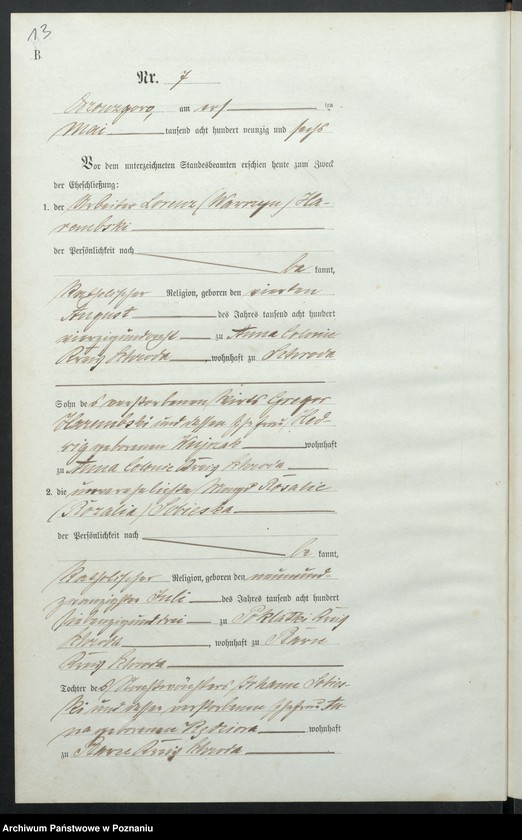 13
B
Nr. 7
am
Mai tausend acht hundert neunzig und sechs
Vor dem unterzeichneten Standesbeamten erschien heute zum Zweck
der Eheschließung:
1. der Arbeiter Lorenz (Wawrzyn) Ha-
rembski
der Persönlichkeit nach
be kannt,
katholischer Religion, geboren den vierten
August des Jahres tausend acht hundert
zu Anna Colonie
Kreis Schroda, wohnhaft zu Schroda
Sohn des verstorbenen Wirts Gregor
Harembski und dessen Ehefrau Hed-
wig geborenen Kujzak wohnhaft
zu Anna Colonie Kreis Schroda
2. die unverehelichte Magd Rosalie
(Rozalia) Sobieska
der Persönlichkeit nach
be kannt,
katholischer Religion, geboren den neunund-
zwanzigsten Juli des Jahres tausend acht hundert
siebenzigunddrei zu Poklatki Kreis
Schroda, wohnhaft zu
Kreis Schroda
Tochter des Johann Sobies-
ki und dessen verstorbenen Ehefrau
geborenen wohnhaft
zu Kreis Schroda
Archiwum Państwowe w Poznaniu